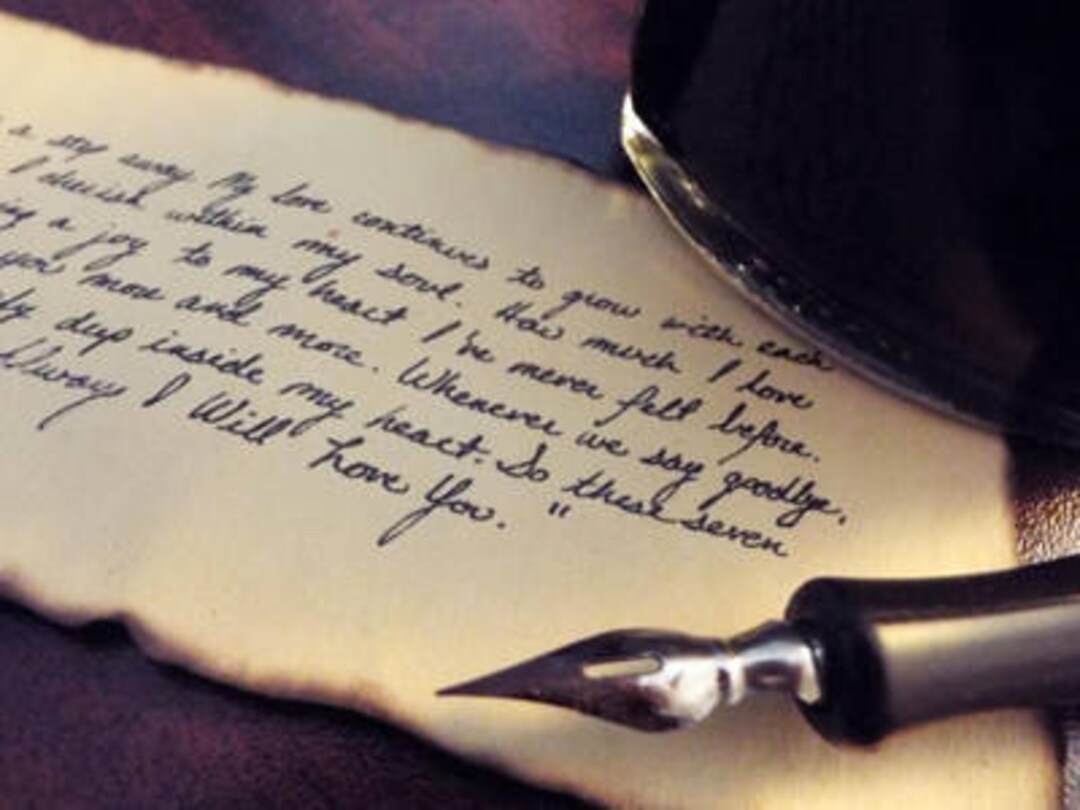 a step away My love continues to grow with each
I cherish within my soul. How much I love
a joy to my heart I've never felt before.
you more and more. Whenever we say goodbye,
deep inside my heart. So these seven
Always I Will Love You. "